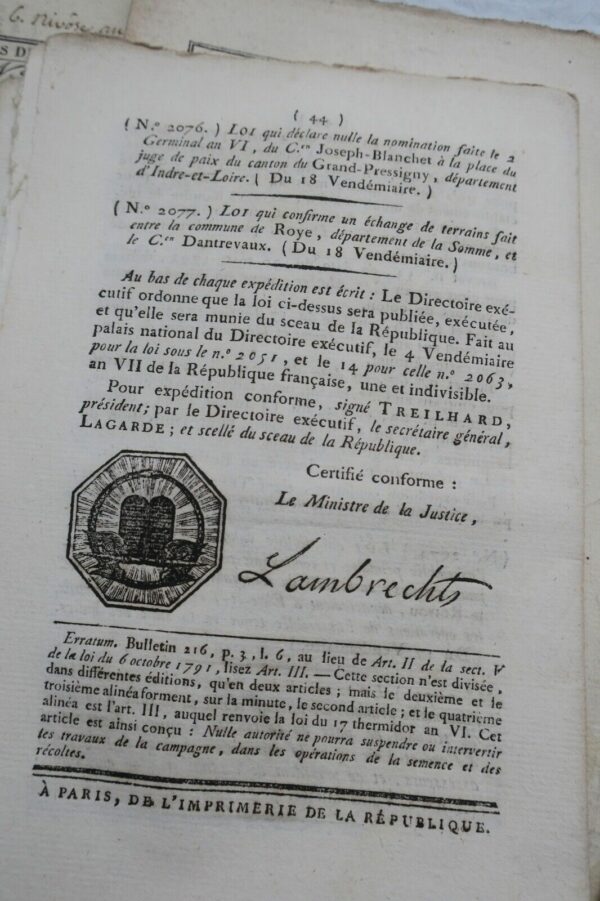 6. nivôse an
S D
( 44 )
( N.º 2076. ) LOI qui déclare nulle la nomination faite le 2
Germinal an VI, du C.en Joseph-Blanchet à la place du
juge de paix du canton du Grand-Pressigny, département
d'Indre-et-Loire. ( Du 18 Vendémiaire. )
( N.º 2077. ) LOI qui confirme un échange de terrains fait
entre la commune de Roye, département de la Somme, et
le C.en Dantrevaux. ( Du 18 Vendémiaire. )
Au bas de chaque expédition est écrit : Le Directoire exé-
cutif ordonne que la loi ci-dessus sera publiée, exécutée,
et qu'elle sera munie du sceau de la République. Fait au
palais national du Directoire exécutif, le 4 Vendémiaire
pour la loi sous le n.º 2051, et le 14 pour celle n.º 2063,
an VII de la République française, une et indivisible.
Pour expédition conforme, signé TREILHARD,
président; par le Directoire exécutif, le secrétaire général,
LAGARDE; et scellé du sceau de la République.
Certifié conforme :
Le Ministre de la Justice,
Lambrechts
Erratum. Bulletin 216, p. 3, l. 6, au lieu de Art. II de la sect. V
de la loi du 6 octobre 1791, lisez Art. III. — Cette section n'est divisée,
dans différentes éditions, qu'en deux articles; mais le deuxième et le
troisième alinéa forment, sur la minute, le second article; et le quatrième
alinéa est l'art. III, auquel renvoie la loi du 17 thermidor an VI. Cet
article est ainsi conçu : Nulle autorité ne pourra suspendre ou intervertir
les travaux de la campagne, dans les opérations de la semence et des
récoltes.
À PARIS, DE L'IMPRIMERIE DE LA RÉPUBLIQUE.